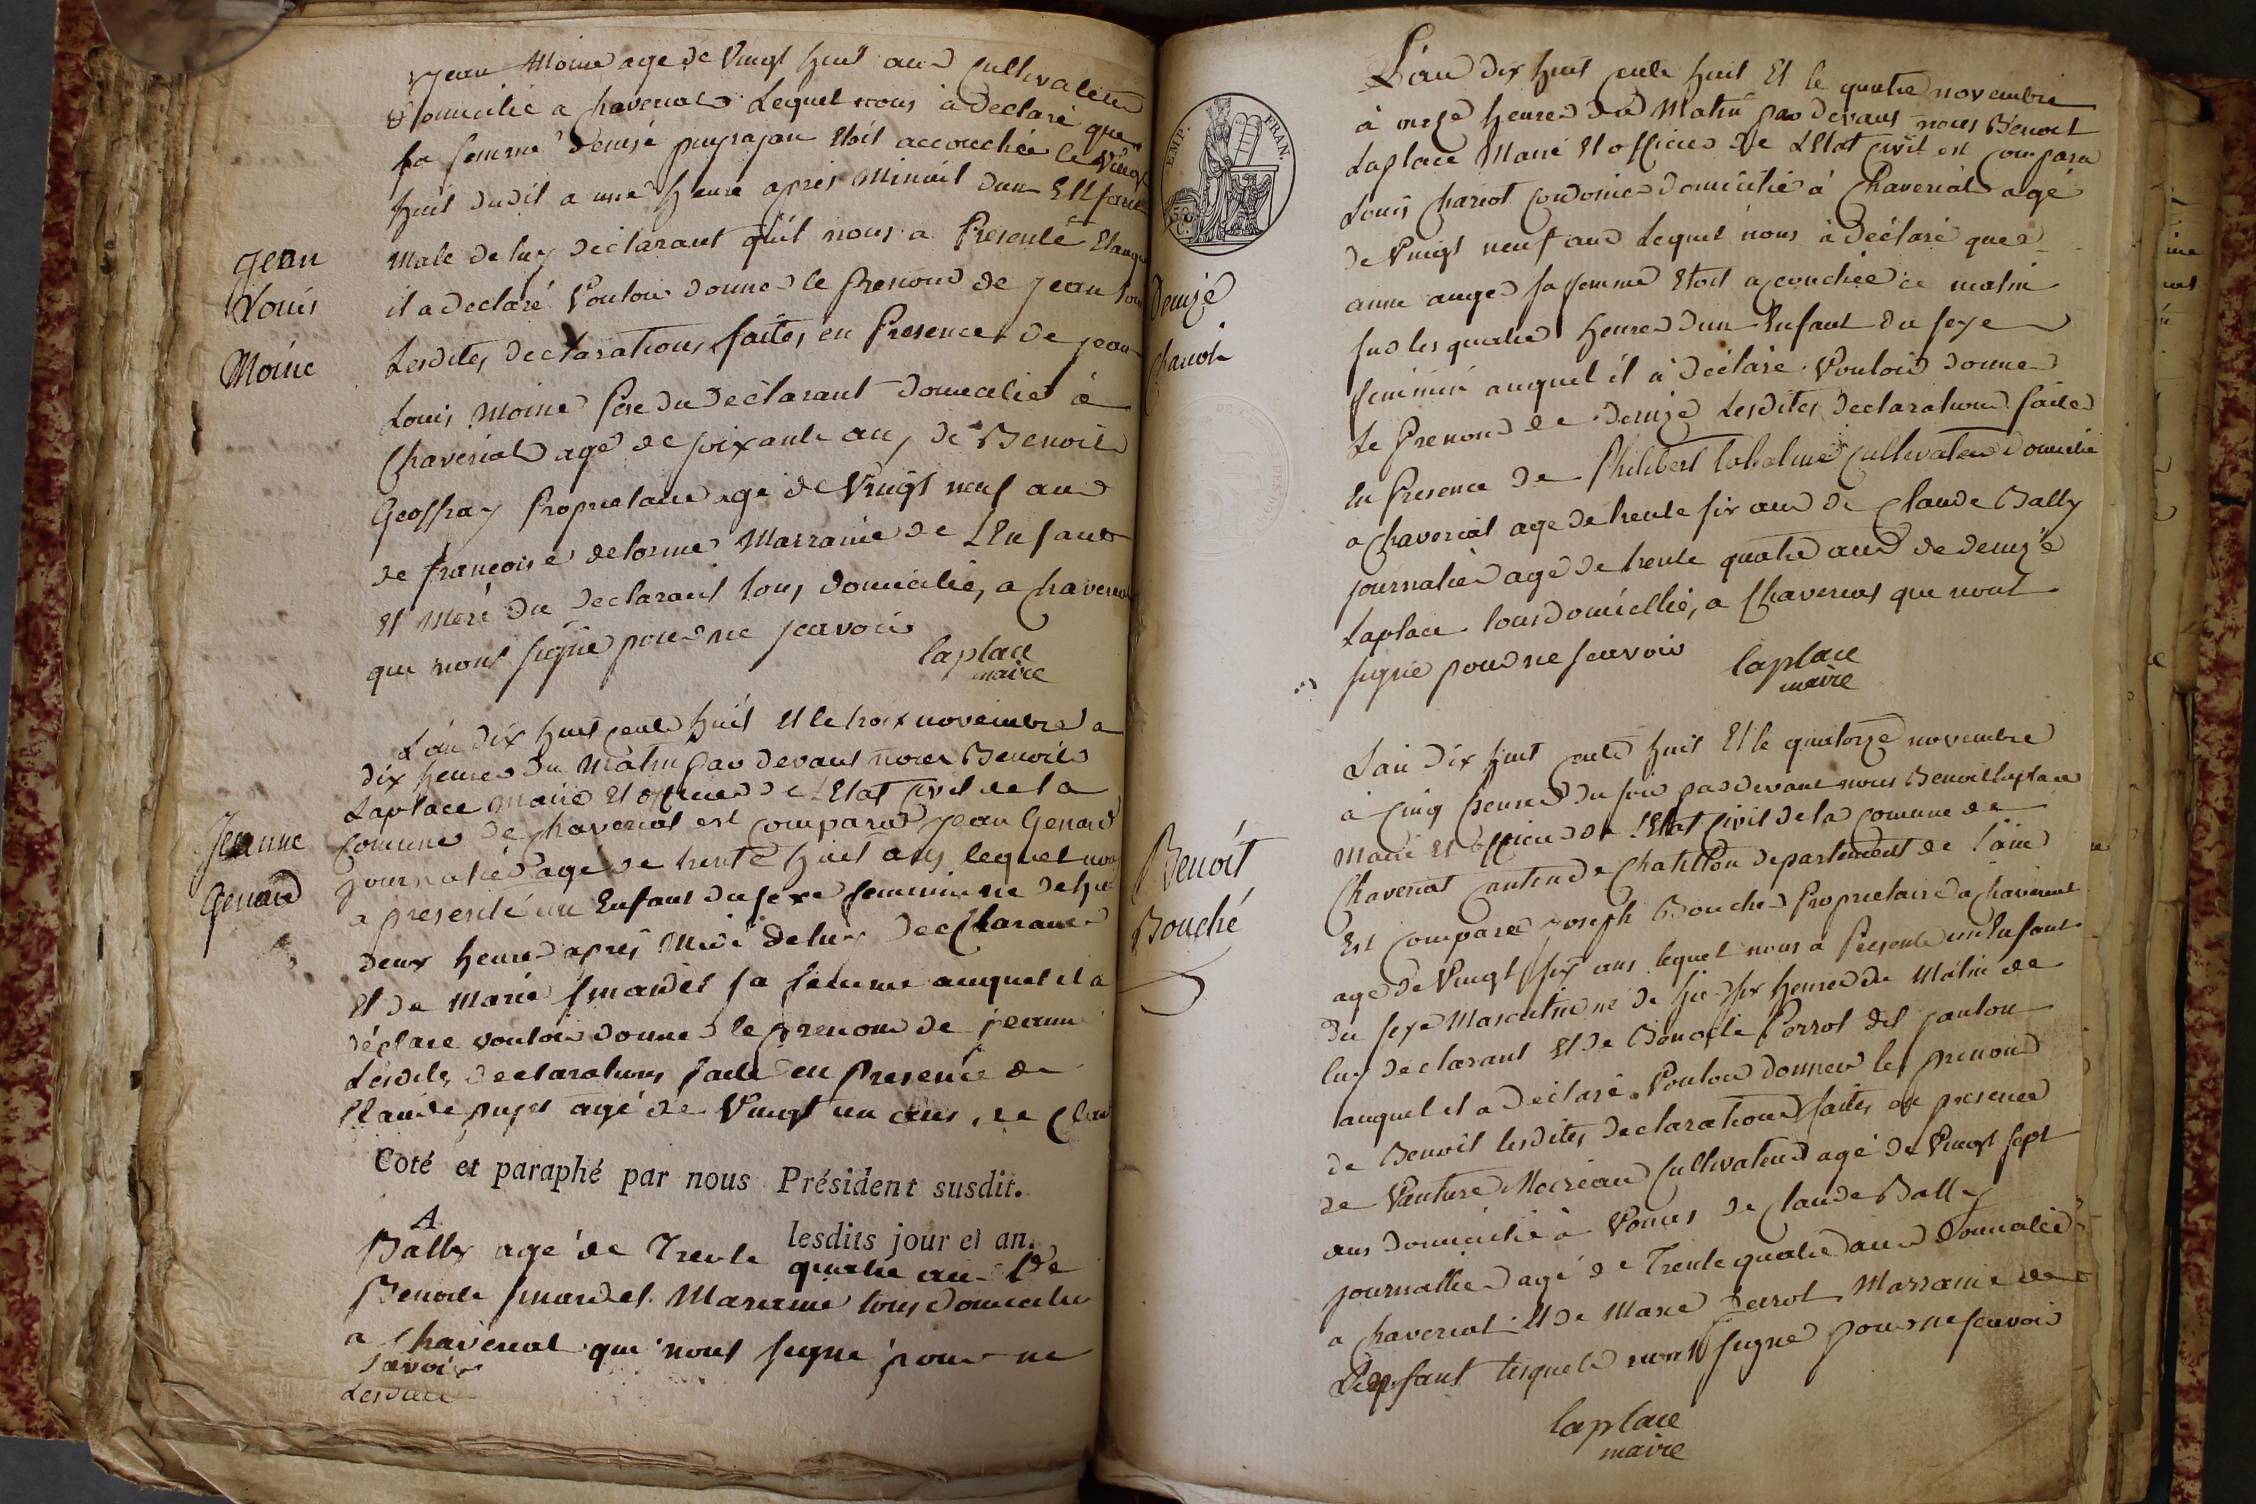 Jean Moine age de Vingt huit ans Cultivateur
Domicilié a Chaveriat Lequel nous a Declaré que
sa femme Denise puysajan Etoit accouchée le Vingt
huit dudit a une heure apres Minuit dun Enfant
Male de luy déclarant qu'il nous a Présenté Etauquel
il a declaré Vouloir donner le Prenom de Jean Louis
Jean
Louis
Moine
Lesdites declarations faites en Presence de Jean
Louis Moine Pere du Déclarant domicilié à
Chaveriat agé de soixante ans de Benoit
Geoffray Proprietaire agé de Vingt neuf ans
de françoise delorme Marraine de L'Enfant
Et Mere du Declarant tous domiciliés a Chaveriat
qui n'ont signé pour ne scavoir
laplace
maire
L'an dix huit cents huit Et le trois novembre a
dix heures du Matin par devant nous Benoit
Laplace Maire Et officier de L'Etat Civil de la
Jeanne
Genard
Comune de Chaveriat est comparu Jean Genard
journalier age de trente huit ans lequel nous
a presenté un Enfant du sexe feminin ne de hier
deux heures apres Midi de luy Declarant
Et de Marie smardet sa femme auquel il a
déclaré vouloir donner le prenom de jeanne
Lesdites Declarations faite en Presence de
Claude puget agé de Vingt un ans, de Clau
Coté et paraphé par nous Président susdit.
lesdits jour et an.
A
Bally agé de Trente quatre ans Et de
Benoite smardet Marraine tous domicilies
a Chaveriat qui n'ont signé pour ne
savoir
L'an dix huit cents huit Et le quatre novembre
à onze heures du Matin par devant nous Benoit
Laplace Maire Et officier de L'Etat Civil est comparu
Louis Chariot Cordonier domicilié à Chaveriat agé
de Vingt neuf ans Lequel nous à déclaré que
Denize
Chariot
anne auger sa femme Etoit acouchée ce matin
sur les quatre heures dun Enfant du sexe
feminin auquel il à déclaré Vouloir donner
Le Prenom de Denize Lesdites Declarations faites
En Presence de Philibert Cultivateur domicilié
a Chaveriat age de trente six ans de Claude Bally
journalier agé de trente quatre ans de denize
Laplace tous domicilliés a Chaveriat que n'ont
signé pour ne scavoir
laplace
maire
L'an dix huit cents huit Et le quatorze novembre
à Cinq heures du soir par devant nous Benoit laplace
Maire Et officier de L'Etat Civil de la Comune de
Benoit
Bouché
Chaveriat Canton de Chatillon departement de l'ain
Est Comparu joseph Boucher Proprietaire a Chaveriat
age de Vingt six ans lequel nous a Présenté un Enfant
du sexe Masculin né de hier six heures de Matin de
luy declarant Et de Benoite Perrot
auquel il a declaré Vouloir donner le prenom
de Benoit lesdites declarations faites en presence
de Vanture Moiréau Cultivateur agé de Vingt sept
ans Domicilié à Vonnas de Claude Bally
journallier agé de Trente quatre ans domicilié
a Chaveriat Et de Marie Perrot Marraine de
L'enfant lesquels n'ont signé pour ne scavoir
laplace
maire
EMP. FRAN.